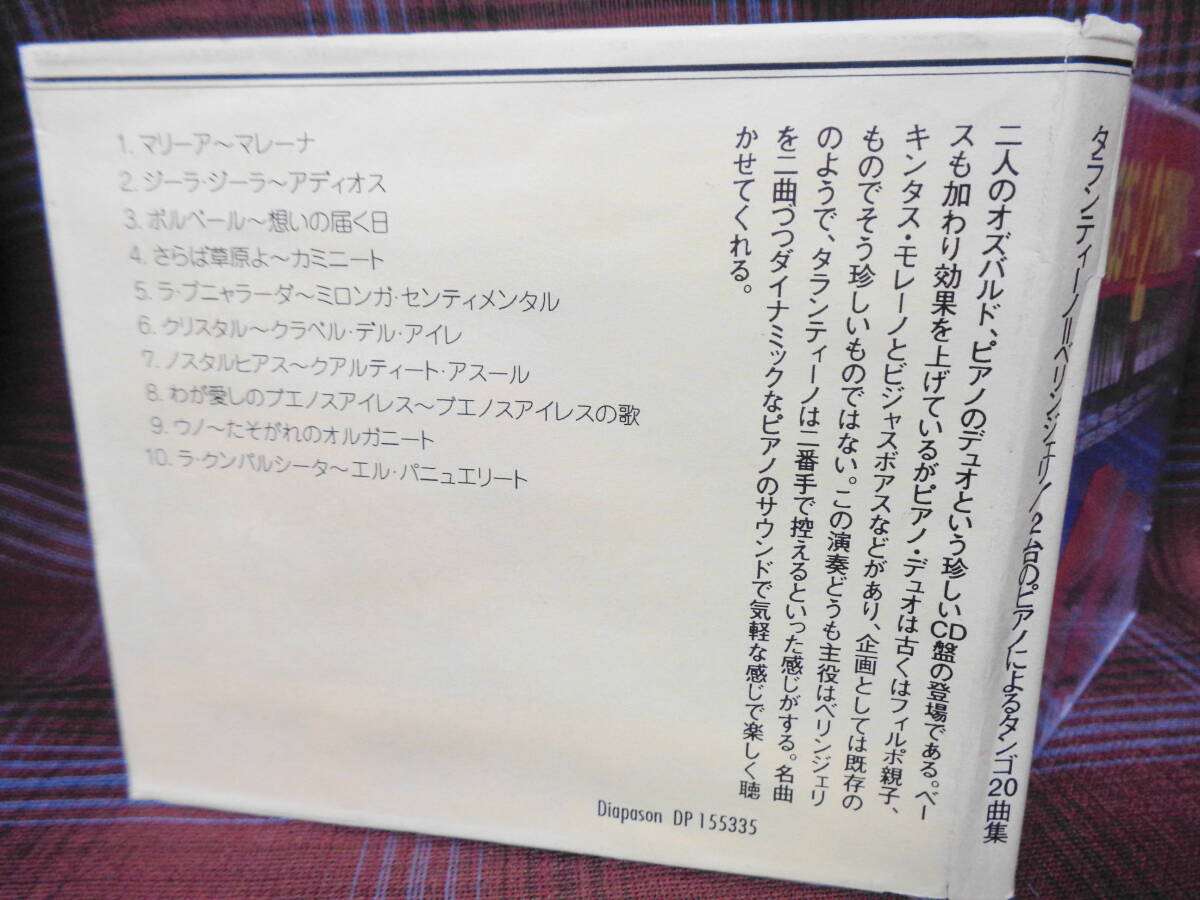 1. マリーア〜マレーナ
2. ジーラ・ジーラ〜アディオス
3. ボルベール〜想いの届く日
4. さらば草原よ〜カミニート
5. ラ・プニャラーダ〜ミロンガ・センティメンタル
6. クリスタル〜クラベル・デル・アイレ
7. ノスタルヒアス〜クアルティート・アスール
8. わが愛しのブエノスアイレス〜ブエノスアイレスの歌
9. ウノ〜たそがれのオルガニート
10. ラ・クンパルシータ〜エル・パニュエリート
二人のオズバルド、ピアノのデュオという珍しいCD盤の登場である。ベー
スも加わり効果を上げているがピアノ・デュオは古くはフィルポ親子、
キンタス・モレーノとビジャスボアスなどがあり、企画としては既存の
ものでそう珍しいものではない。この演奏どうも主役はベリンジェリ
のようで、タランティーノは二番手で控えるといった感じがする。名曲
を二曲づつダイナミックなピアノのサウンドで気軽な感じで楽しく聴
かせてくれる。
Diapason DP 155335
タランティーノ＝ベリンジェリ/2台のピアノによるタンゴ20曲集